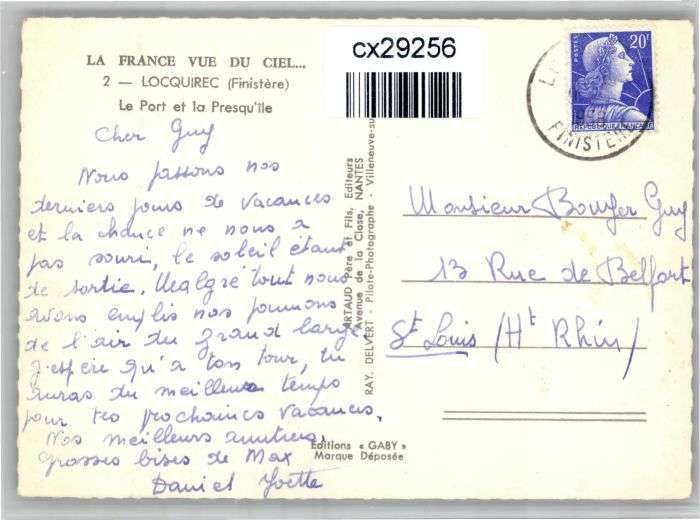 LA FRANCE VUE DU CIEL...
2 — LOCQUIREC (Finistère)
Le Port et la Presqu'île
Cher Guy
Nous passons nos
derniers jours de vacances
et la chance ne nous a
pas souri, le soleil étant
de sortie. Malgré tout nous
avons emplis nos poumons
de l'air du grand large
J'espère qu'a ton tour, tu
auras du meilleur temps
pour tes prochaines vacances.
Nos meilleurs amitiés
grosses bises de Max
Daniel Yvette
cx29256
ARTAUD Père et Fils, Editeurs
Avenue de la Close, NANTES
RAY. DELVERT - Pilote-Photographe - Villeneuve-su
Editions « GABY »
Marque Déposée
POSTES 20F
REPUBLIQUE FRANÇAISE
LO
FINISTER
Monsieur Bouger Guy
13 Rue de Belfort
St Louis (Ht Rhin)